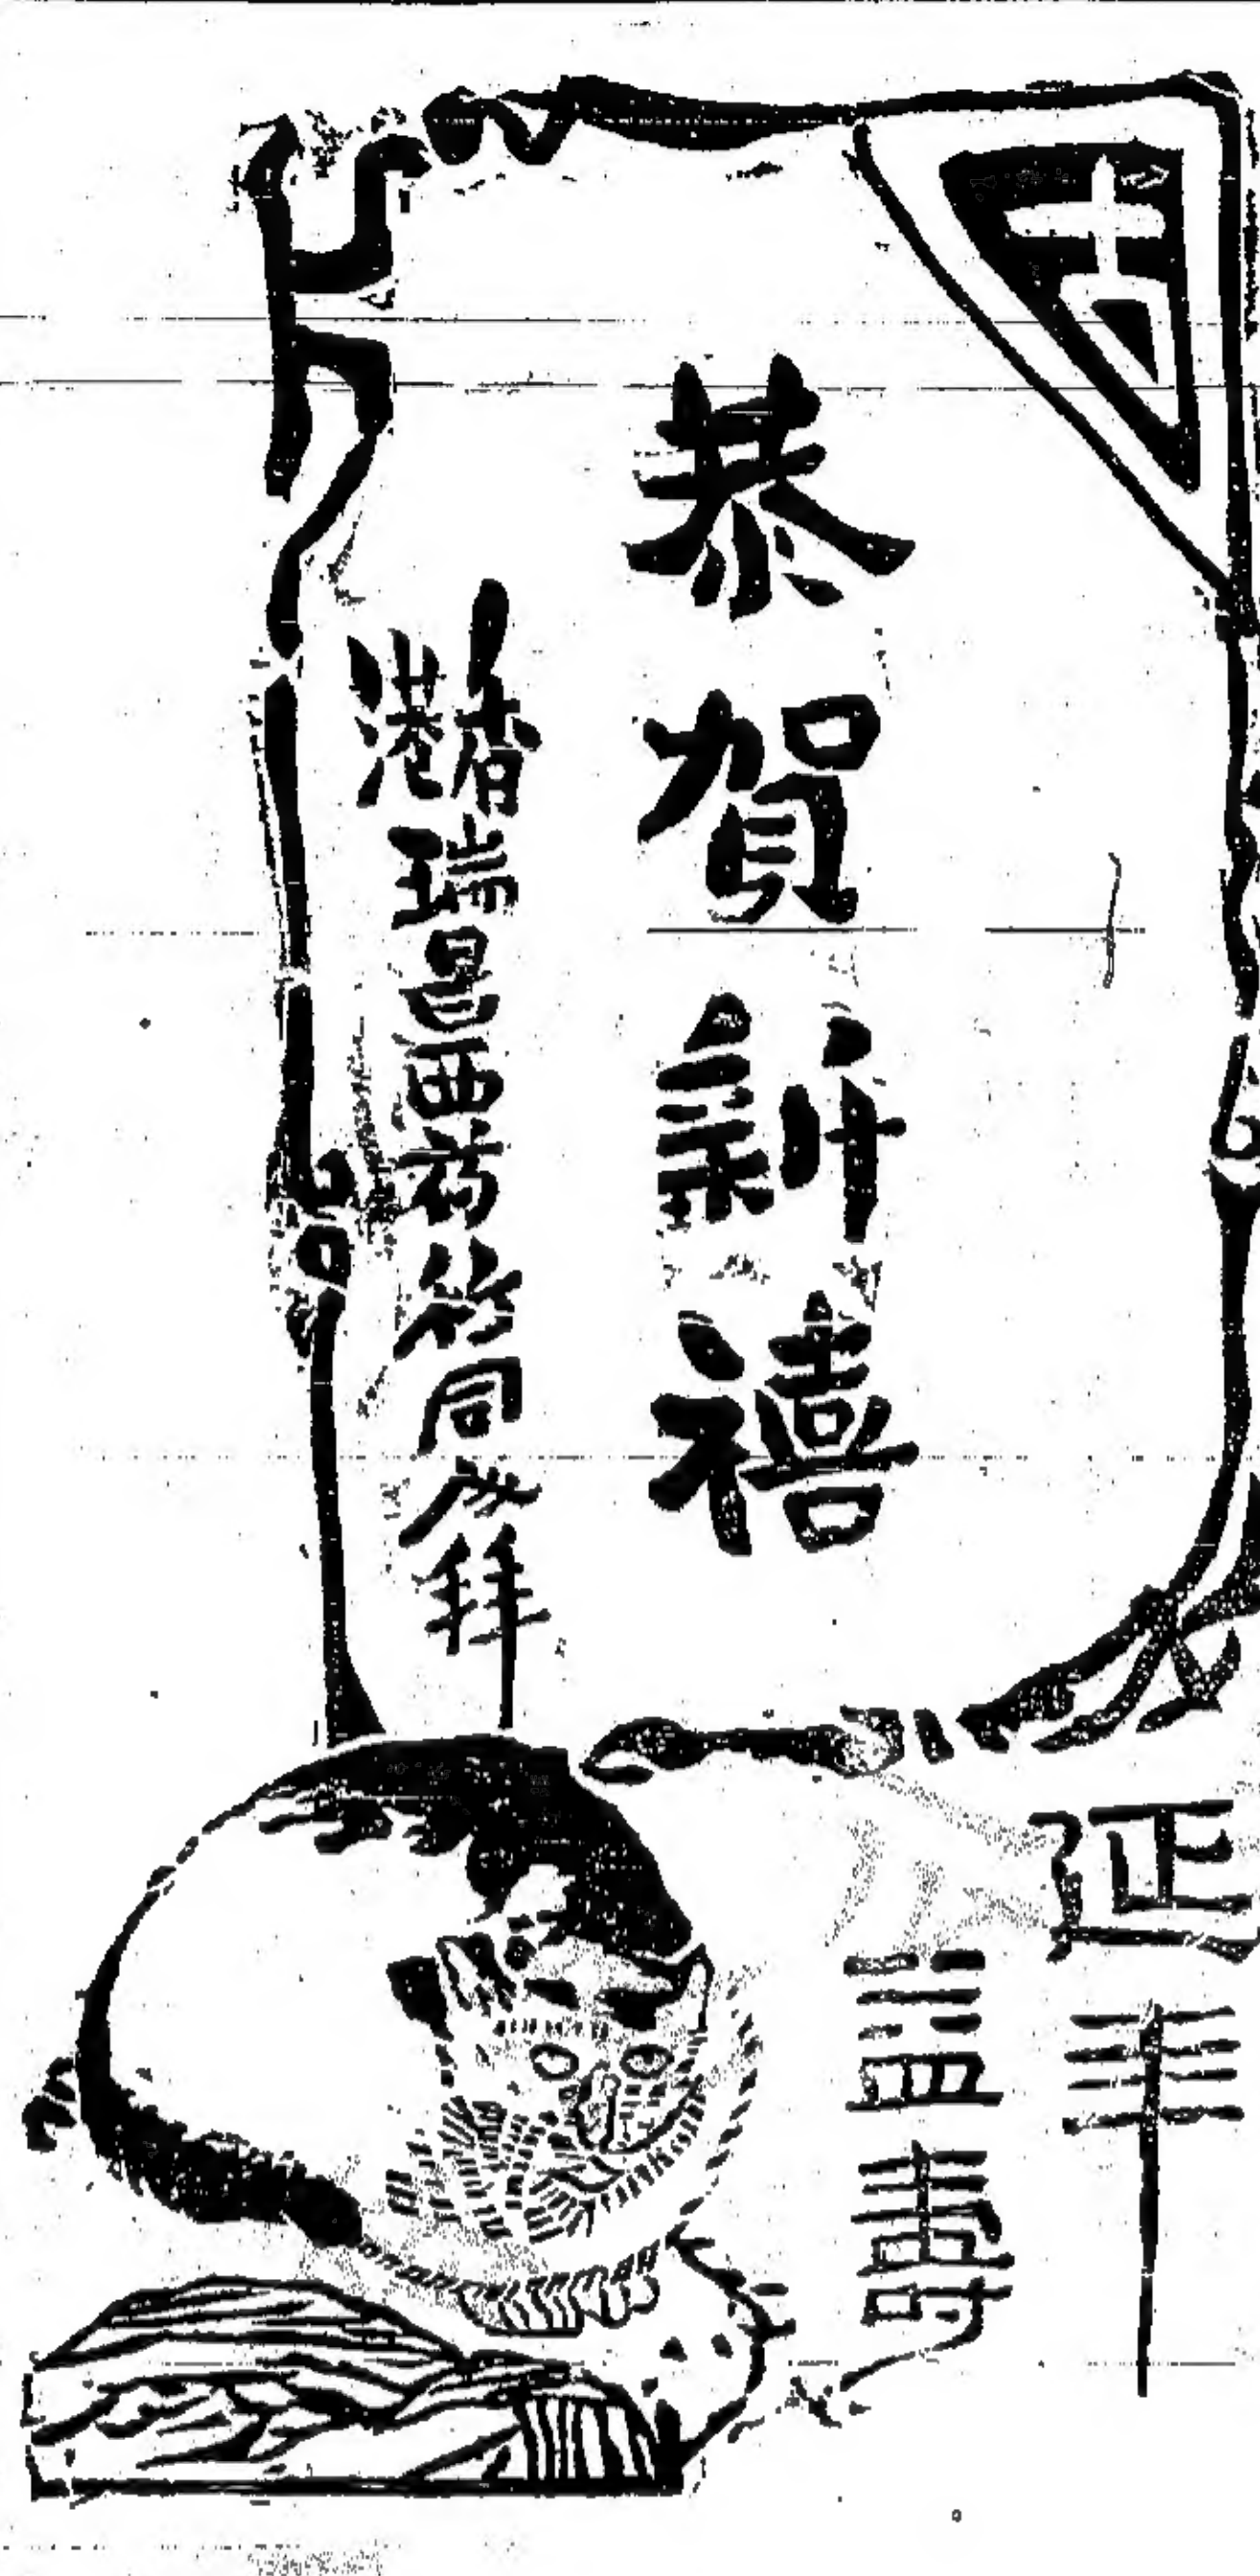 恭賀新禧
香港瑞昌西药行同人拜
延年
益壽